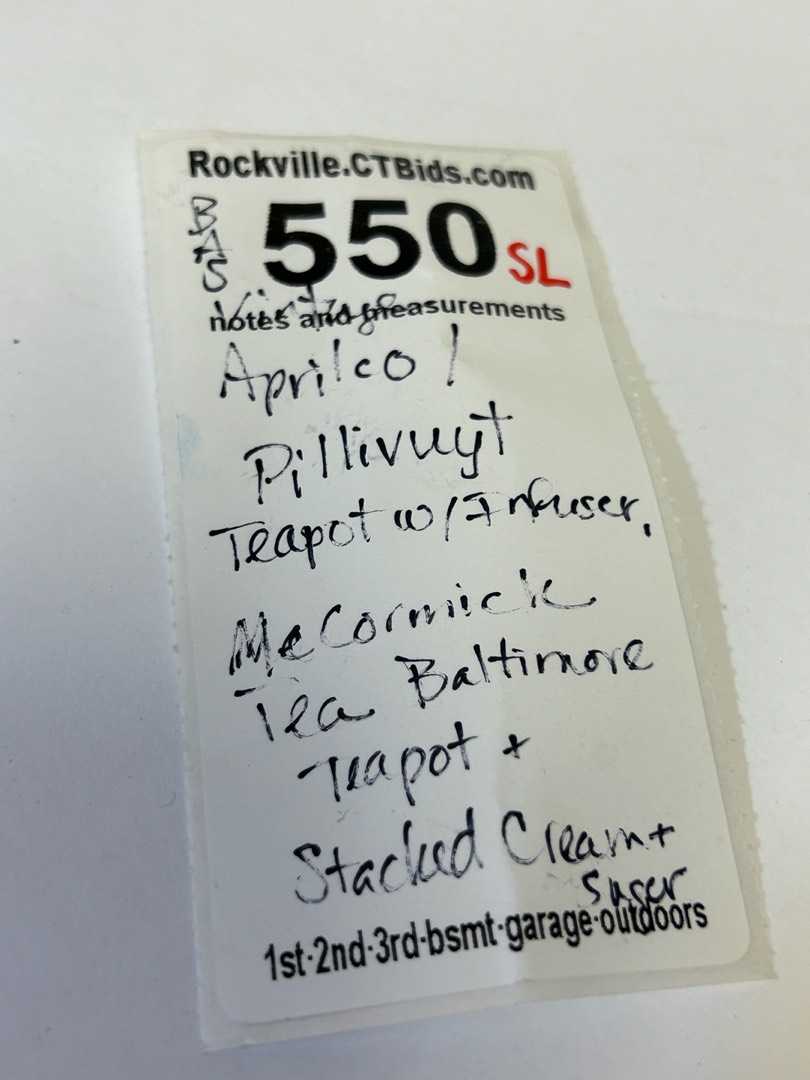 Rockville.CTBids.com
BAS
550 SL
Vintage
notes and measurements
Aprilco /
Pillivuyt
Teapot w/Infuser,
McCormick
Tea Baltimore
Teapot +
Stacked Cream +
Sugar
1st·2nd·3rd·bsmt·garage·outdoors